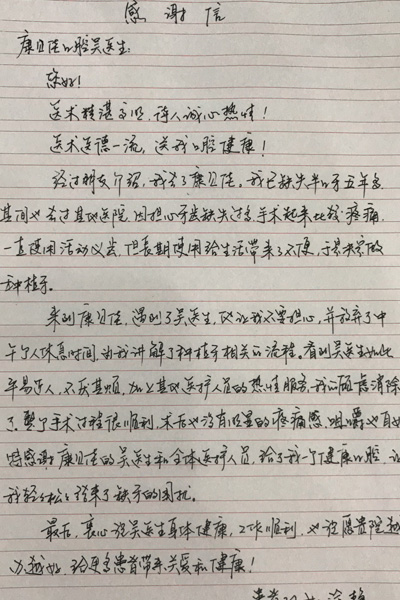 感谢信
康贝佳口腔吴医生:
您好!
医术精湛高明，待人诚心热情!
医术医德一流，送我口腔健康!
经过朋友介绍，我去了康贝佳。我已缺失半口牙五年多
其间也去过其他医院，因担心牙齿缺失过多，手术起来比较疼痛，
一直使用活动义齿，但长期使用给生活带来了不便，于是决定做
种植牙。
来到康贝佳，遇到了吴医生，他让我不要担心，并放弃了中
午个人休息时间，为我讲解了种植牙相关的流程。看到吴医生如此
平易近人，不厌其烦，加上其他医护人员的热情服务，我的顾虑消除
了。整个手术过程很顺利，术后也没有明显的疼痛感，咀嚼也自如
特感谢康贝佳的吴医生和全体医护人员，给了我一个健康口腔，让
我轻松摆脱了缺牙的困扰。
最后，衷心祝吴医生身体健康，工作顺利，也祝愿贵院越
办越好，给更多患者带来关爱和健康!
患者